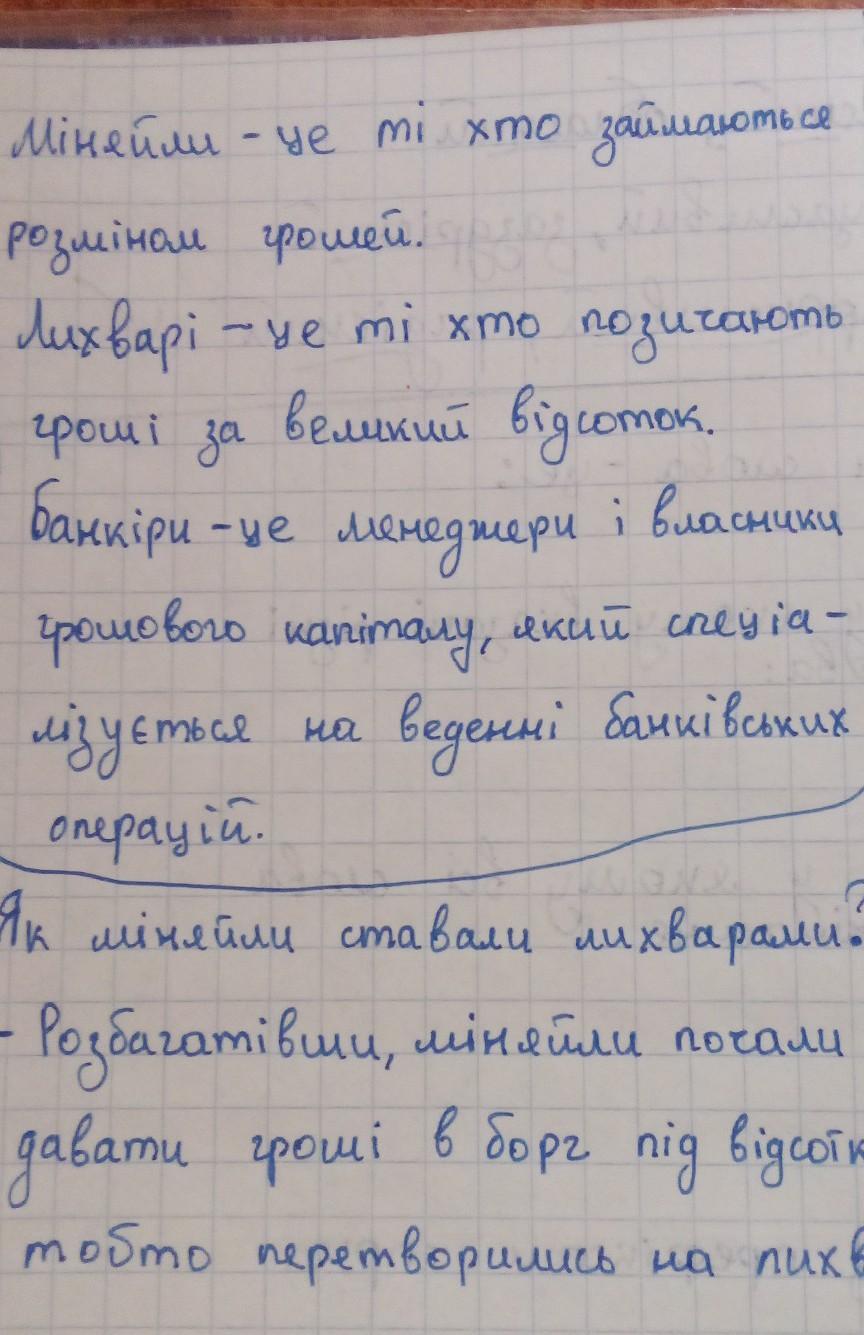 Міняйли - це ті хто займаються
розміном грошей.
Лихварі - це ті хто позичають
гроші за великий відсоток.
Банкіри - це менеджери і власники
грошового капіталу, який спеціа-
лізується на веденні банківських
операцій.
Як міняйли ставали лихварами?
- Розбагатівши, міняйли почали
давати гроші в борг під
тобто перетворились на